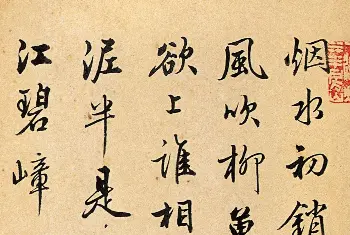 烟水初銷
風吹柳
欲上誰相
泥半是
江碧嶂